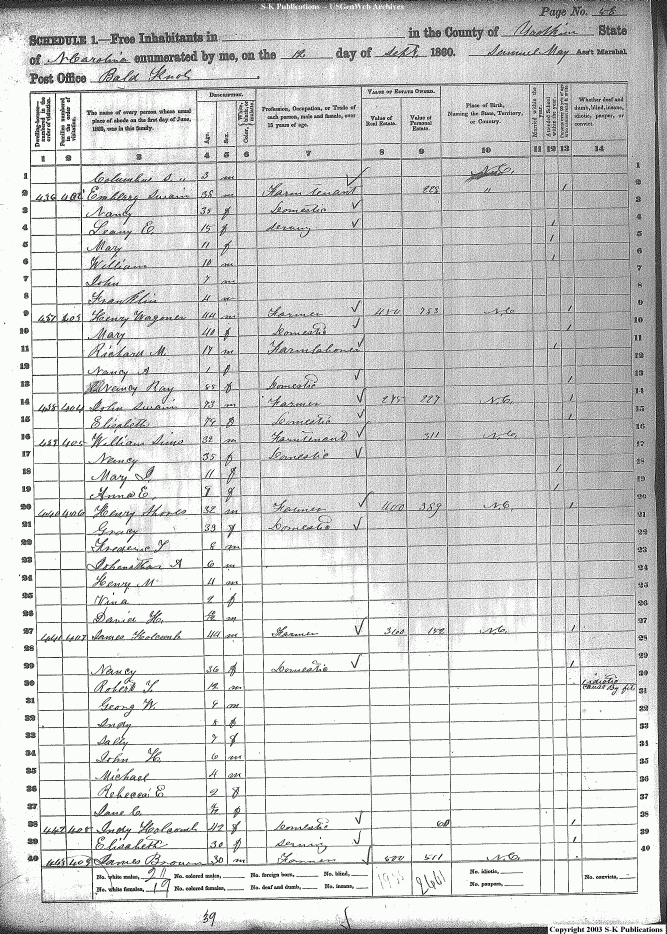 S-K Publications – USGenWeb Archives
Page No. 58
SCHEDULE 1.—Free Inhabitants in in the County of Yadkin State
of N Carolina enumerated by me, on the 12 day of Sept 1860. Samuel May Ass't Marshal
Post Office Bald Knob
DESCRIPTION. VALUE OF ESTATE OWNED.
The name of every person whose usual place of abode on the first day of June, 1860, was in this family.
Age. Sex.
Profession, Occupation, or Trade of each person, male and female, over 15 years of age.
Value of Real Estate. Value of Personal Estate.
Place of Birth, Naming the State, Territory, or Country.
Married within the year.
Whether deaf and dumb, blind, insane, idiotic, pauper, or convict.
1 2 3 4 5 6 7 8 9 10 11 12 13 14
1 Columbus 3 m 1
2 436 402 Emberg Swain 38 m Farm tenant 228 " / 2
3 Nancy 35 f Domestic 3
4 Leany E. 15 f serving / 4
5 Mary 11 f / 5
6 William 10 m / 6
7 John 7 m 7
8 Franklin 4 m 8
9 437 403 Henry Wagoner 44 m Farmer 450 753 N.C. / 9
10 Mary 40 f Domestic / 10
11 Richard M. 17 m Farmlaborer / 11
12 Nancy A 1 f
13 Nancy Ray 55 f Domestic /
14 438 404 John Swain 73 m Farmer 275 227 N.C. /
15 Elisabeth 79 f Domestic /
16 439 405 William Sims 32 m Farmtenant 311 N.C.
17 Nancy 35 f Domestic
18 Mary J. 11 f /
19 Anna E. 9 f /
20 440 406 Henry Shores 32 m Farmer 400 359 N.C. /
21 Gracy 33 f Domestic
22 Frederic T 8 m
23 Johnathan A 6 m
24 Henry M 4 m
25 Vina 2 f
26 Daniel H. m
27 441 407 James Holcomb 44 m Farmer 300 152 N.C. /
28
29 Nancy 36 f Domestic /
30 Robert T. 12 m idiotic cause By fits
31 Georg W. 9 m
32 Indy 8 f
33 Sally 7 f
34 John H. 6 m
35 Michael 4 m
36 Rebecca E 2 f
37 Jane C. f
38 442 408 Indy Holcomb 42 f Domestic 60 /
39 Elisabeth 30 f serving /
40 443 409 James Brown 30 m Farmer 500 511 N.C. 40
No. white males, 20 No. colored males, No. foreign born, No. blind, 2661 No. idiotic, No. convicts,
No. white females, 19 No. colored females, No. deaf and dumb, No. insane, No. paupers,
39
Copyright 2003 S-K Publications